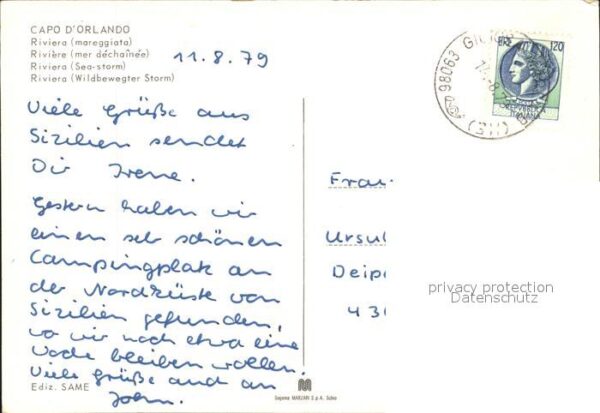 CAPO D'ORLANDO
Riviera (mareggiata)
Rivière (mer déchaînée)
Riviera (Sea-storm)
Riviera (Wildbewegter Storm)
11.8.79
Viele Grüße aus
Sizilien sendet
Dir Irene.
Gestern haben wir
einen sehr schönen
Campingplatz an
der Nordküste von
Sizilien gefunden,
wo wir noch etwa eine
Woche bleiben wollen.
Viele Grüße auch an
John.
Ediz. SAME
98063
(ME)
120
ITALIANA
Frau
Ursul
Deip
43
privacy protection
Datenschutz